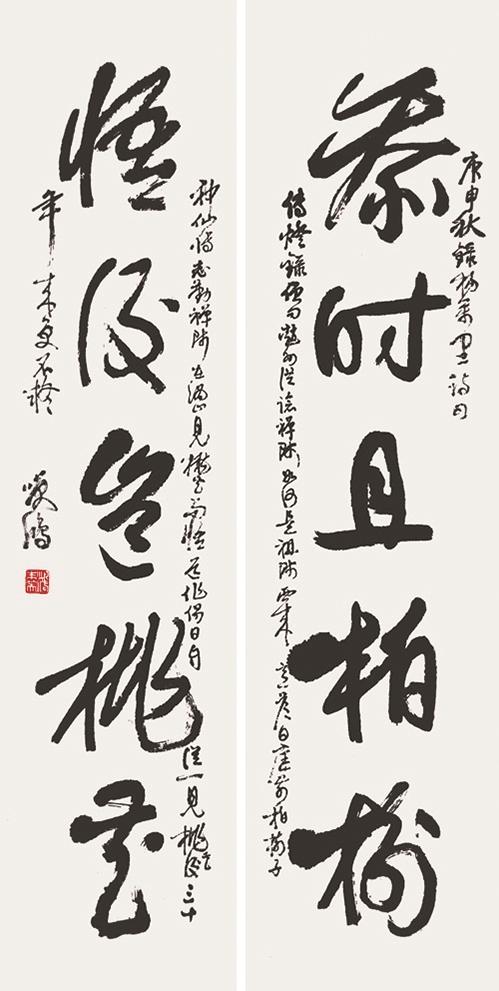 庚申秋錄楊萬里詩句
参时且柏樹
傳燈錄僧問趙州從諗禪師如何是祖師西来意答曰庭前柏樹子
志勤禪師在溈山見桃花而悟道作偈曰自從一見桃花後三十
悟後豈桃花
年来更不疑